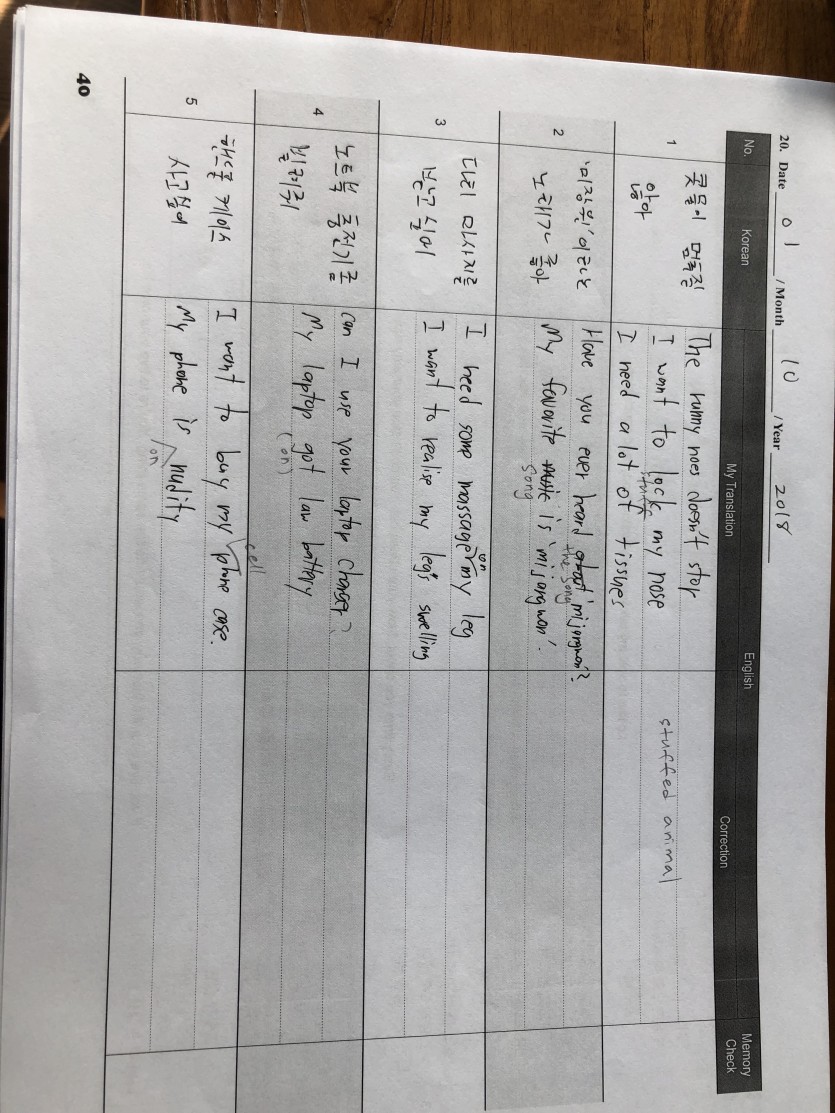 20. Date 01 / Month 10 / Year 2018
No. Korean English Memory Check
My Translation Correction
1 콧물이 멈추질 않아
The runny noes doesn't stop
I want to lock my nose
stuff
I need a lot of tissues
stuffed animal
2 '미장원' 이라는 노래가 좋아
Have you ever heard 'mijangwon'?
the song
My favorite music is 'mijangwon'.
song
3 다리 마사지를 받고싶어
I need some massage on my leg
I want to realise my leg's swelling
4 노트북 충전기좀 빌려줘
Can I use your laptop charger?
My laptop got law battery
(on)
5 핸드폰 케이스 사고싶어
I want to buy my cell phone case.
My phone is nudity
on
40